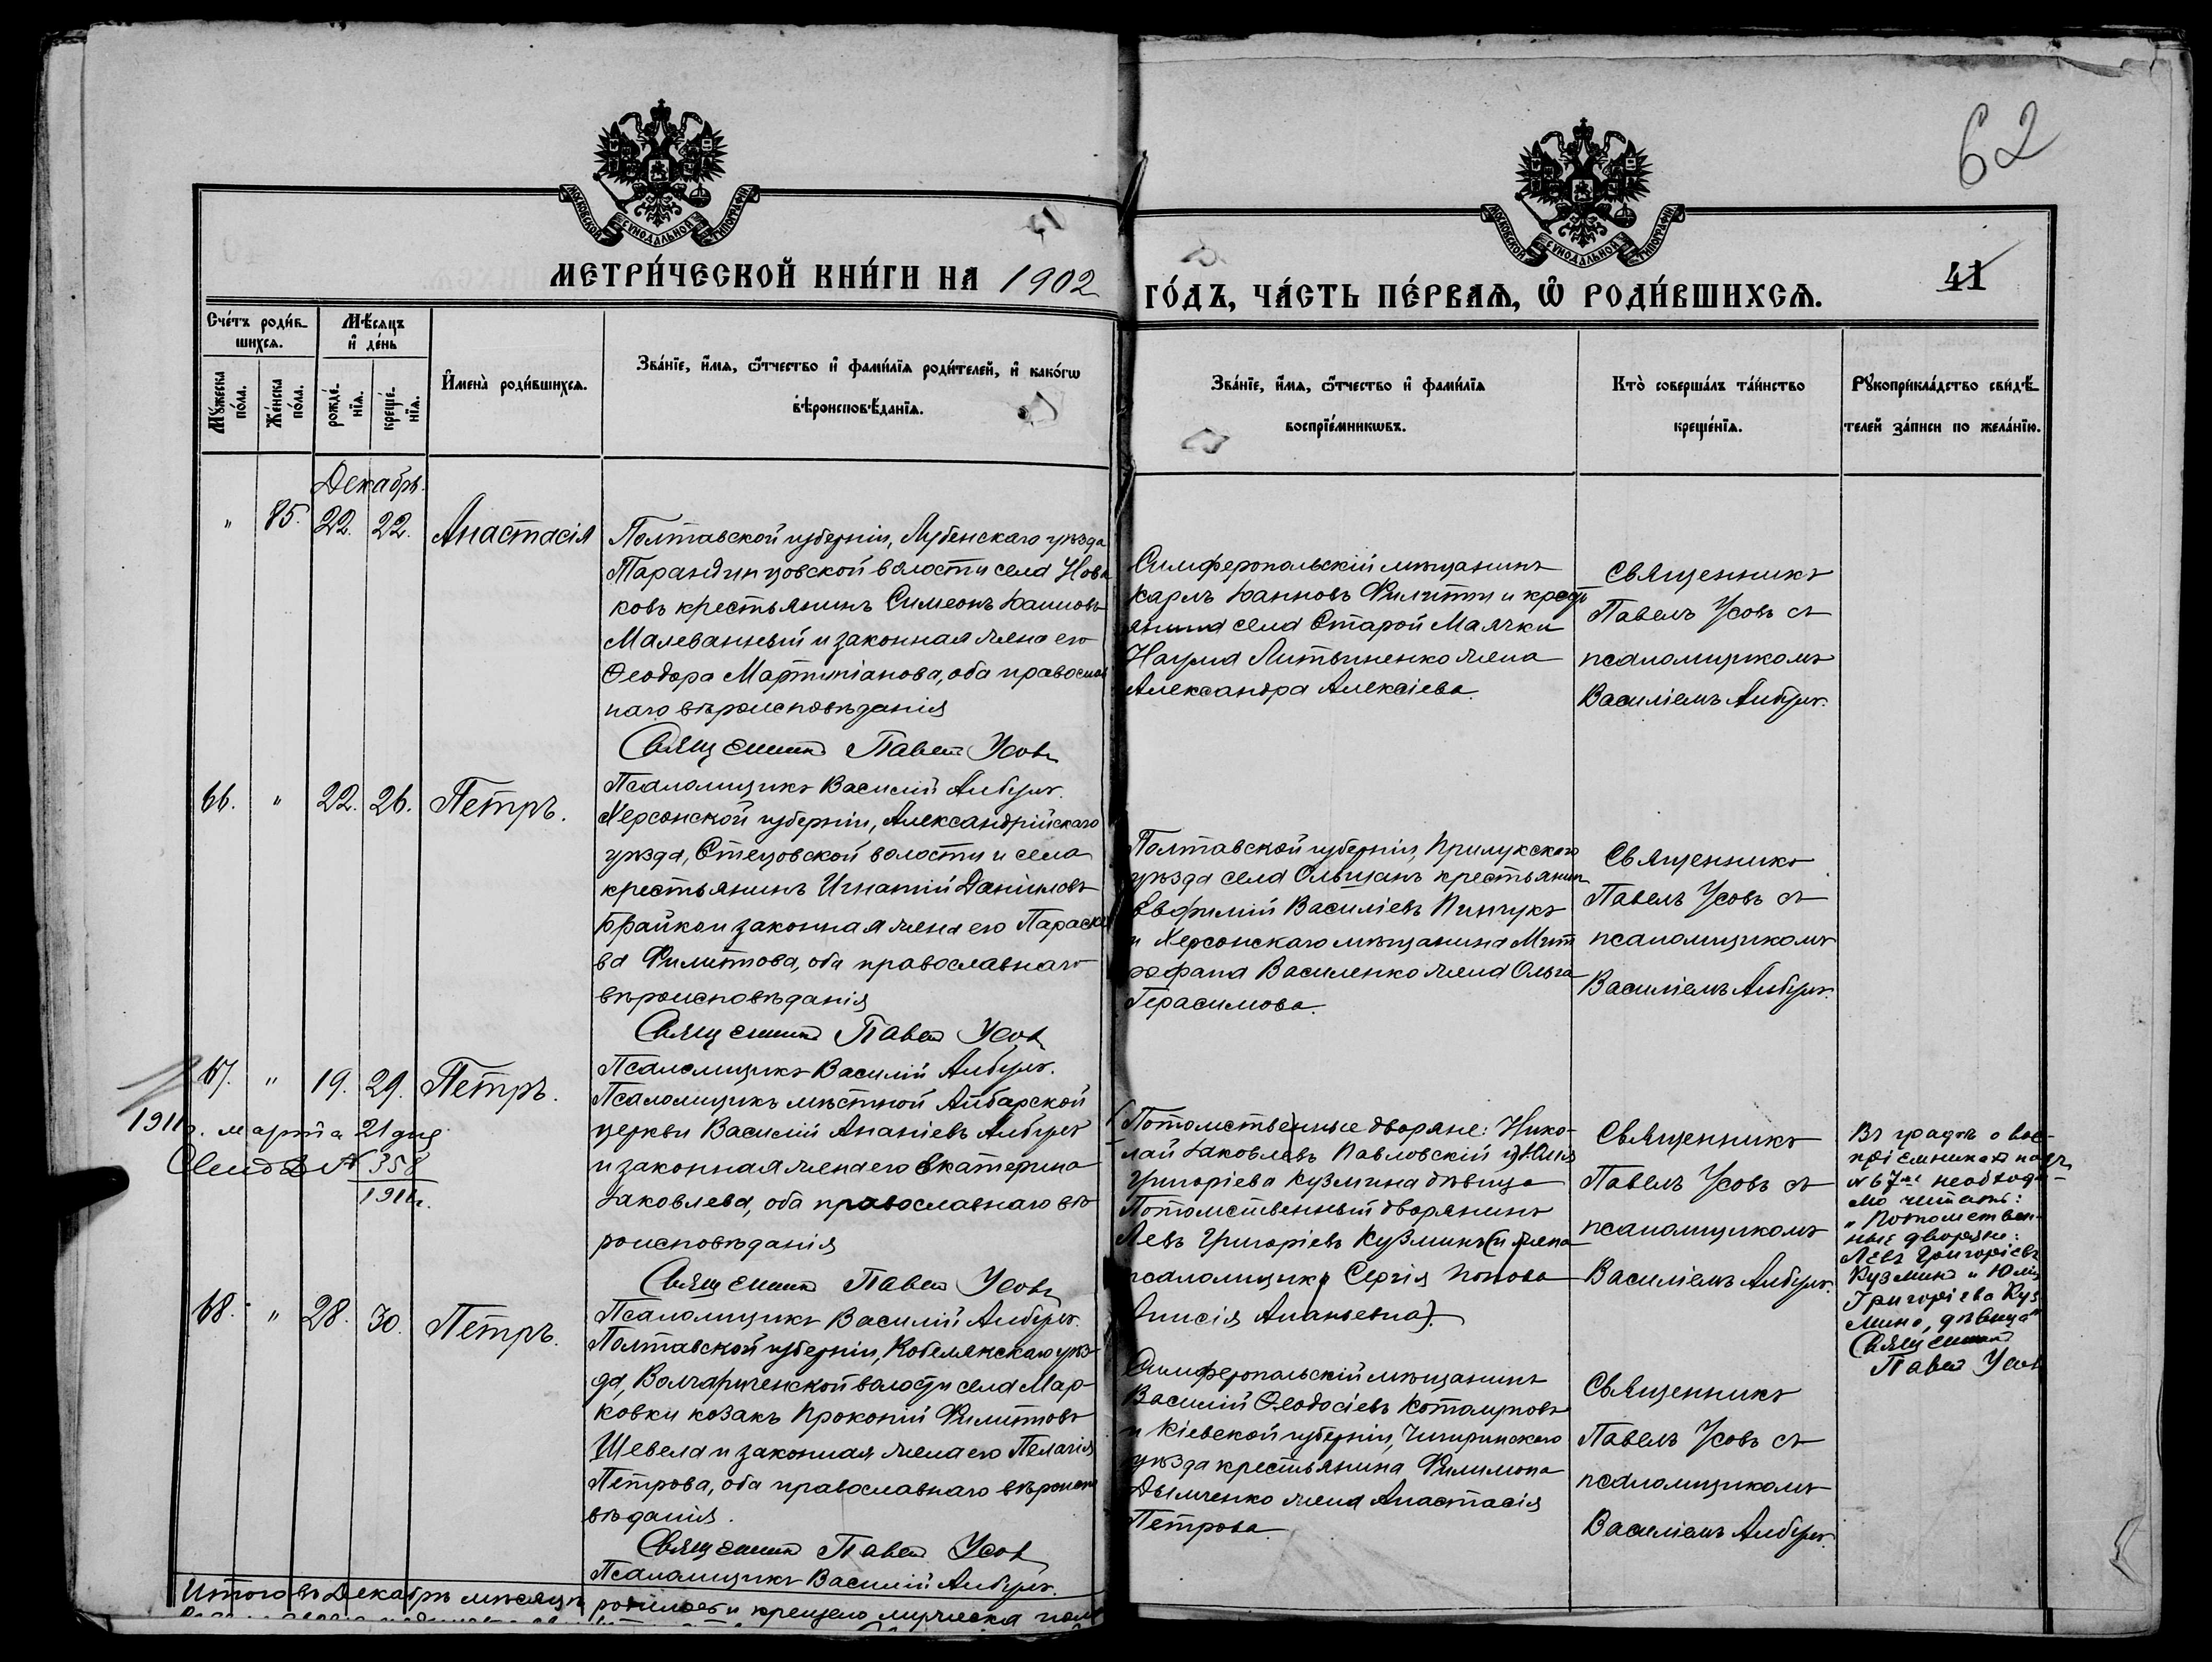 62
МОСКОВСКОЙ СѴНОДАЛЬНОЙ ТИПОГРАФІИ
МОСКОВСКОЙ СѴНОДАЛЬНОЙ ТИПОГРАФІИ
МЕТРИ́ЧЕСКОЙ КНИ́ГИ НА 1902
ГО́ДЪ, ЧА́СТЬ ПЕ́РВАЯ, Ѽ РОДИ́ВШИХСЯ.
41
Сче́тъ роди́в-
шихся.
Мꙋ́жеска по́ла.
Же́нска по́ла.
Мѣ́сяцъ
и҆ де́нь
рожде́-
нїя.
креще́-
нїя.
И҆мена̀ роди́вшихся.
Зва́нїе, и҆́мя, ѻ҆́тчество и҆ фами́лїя роди́телей, и҆ како́гѡ
вѣроисповѣ́данїя.
Зва́нїе, и҆́мя, ѻ҆́тчество и҆ фами́лїя
воспрїе́мникѡвъ.
Кто̀ соверша́лъ та́инство
креще́нїя.
Рꙋкоприкла́дство свидѣ́-
телей за́писи по жела́нїю.
Декабрь.
" 85. 22. 22. Анастасія
Полтавской губерніи, Лубенскаго уѣзда
Тарандинцовской волости села Нова
ковъ крестьянинъ Симеонъ Іаанновъ
Малеванный и законная жена его
Ѳеодора Мартиніанова, оба православ
наго вѣроисповѣданія
Священникъ Павелъ Усовъ
Псаломщикъ Василій Анбулъ.
Симферопольскій мѣщанинъ
Карлъ Іанновъ Филиппи и крестьянина села Старой Маячки
Наума Литвиненко жена
Александра Алексіева.
Священникъ
Павелъ Усовъ съ
псаломщикомъ
Василіемъ
66. " 22. 26. Петръ.
Херсонской губерніи, Александрійскаго
уѣзда, Стецовской волости и села
крестьянинъ Игнатій Даніиловъ
Брайко и законная жена его Параске
ва Филиппова, оба православнаго
вѣроисповѣданія
Священникъ Павелъ Усовъ
Псаломщикъ Василій
Полтавской губерніи, Прилукскаго
уѣзда села Ольшанъ крестьянин
Евфимій Василіевъ Пинчукъ
и Херсонскаго мѣщанина Мит
рофана Василенко жена Ольга
Герасимова.
Священникъ
Павелъ Усовъ съ
псаломщикомъ
Василіемъ
67. " 19. 29. Петръ.
1911 г. марта 21 дня
Свид. № 358
1911 г.
Псаломщикъ мѣстной Айбарской
церкви Василій Ананіевъ
и законная жена его Екатерина
Іаковлева, оба православнаго вѣ
роисповѣданія
Священникъ Павелъ Усовъ
Псаломщикъ Василій
Потомственные дворяне: Нико-
лай Іаковлевъ Павловскій и Юлія
Григоріева Кузмина дѣвица
Потомственный дворянинъ
Левъ Григоріевъ Кузминъ (и жена
псаломщика Сергія Попова
Анисія Ананьевна).
Священникъ
Павелъ Усовъ съ
псаломщикомъ
Василіемъ
Въ графѣ о вос-
пріемникахъ подъ
№ 67мъ необходи-
мо читать:
"Потомствен-
ные дворяне:
Левъ Григоріевъ
Кузминъ и Юлія
Григоріева Куз
мина, дѣвица"
Священникъ
Павелъ Усовъ
68. " 28. 30. Петръ.
Полтавской губерніи, Кобелякскаго уѣз-
да, волости села Мар-
ковки козакъ Прокопій Филипповъ
Шевела и законная жена его Пелагія
Петрова, оба православнаго вѣроиспо
вѣданія.
Священникъ Павелъ Усовъ
Псаломщикъ Василій
Симферопольскій мѣщанинъ
Василій Ѳеодосіевъ
и Кіевской губерніи, Чигиринскаго
уѣзда крестьянина Филимона
Дымченко жена Анастасія
Петрова
Священникъ
Павелъ Усовъ съ
псаломщикомъ
Василіемъ
Итого въ Декабрѣ мѣсяцѣ родилось и крещено мужеска пола